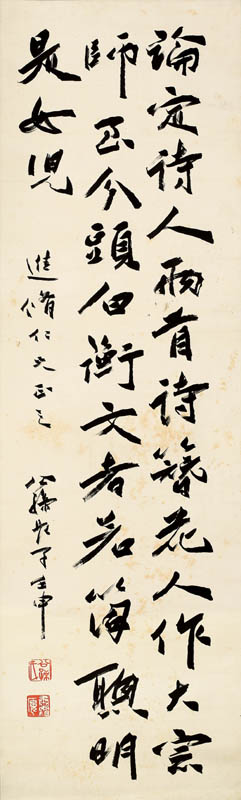 論定詩人兩首詩簪花人作大宗
師至今頭白衡文者若箇聰明
是女兒
進脩仁丈正之
公孫長子壬申